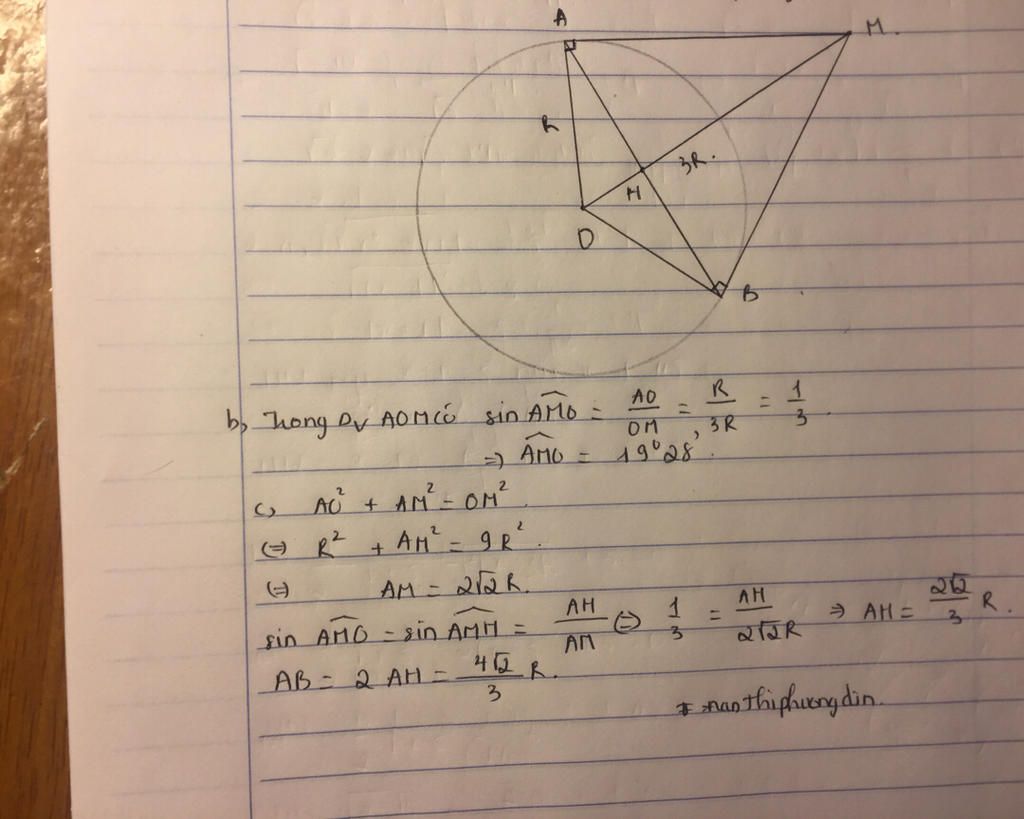 A
M.
R
3R.
H
O
B
b, Trong Δv AOM có sin AMO = AO/OM = R/3R = 1/3.
=> AMO = 19°28'.
c, AO² + AM² = OM².
(=) R² + AM² = 9R².
(=) AM = 2√2R.
sin AMO = sin AMH = AH/AM (=) 1/3 = AH/2√2R => AH = 2√2/3 R.
AB = 2 AH = 4√2/3 R.